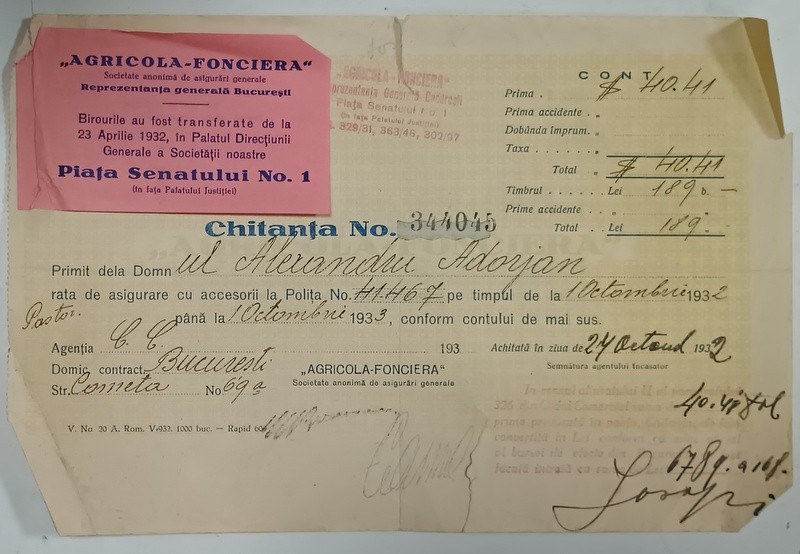 „AGRICOLA-FONCIERA"
Societate anonimă de asigurări generale
Reprezentanța generală București
Birourile au fost transferate de la
23 Aprilie 1932, în Palatul Direcțiunii
Generale a Societății noastre
Piața Senatului No. 1
(în fața Palatului Justiției)
„AGRICOLA-FONCIERA"
Reprezentanța Generală București
Piața Senatului No. 1
(în fața Palatului Justiției)
329/31, 363/46, 302/97
CONT
Prima . $ 40.41
Prima accidente . „
Dobânda împrum. „
Taxa . . . . . . „
Total „ $ 40.41
Timbrul . . . . . . Lei 189 b. —
Prime accidente . . „
Total . . Lei 189. —
Chitanța No. 344045
Primit dela Domnul Alexandru Adorjan
rata de asigurare cu accesorii la Polița No. 41.467 pe timpul de la 1 Octombrie 1932
Pastor.
până la 1 Octombrie 1933, conform contului de mai sus.
Agenția C. C. 193
Achitată în ziua de 27 Octomb 1932
Domic contract. București
Semnătura agentului încasator
Str. Cometa No. 69a
„AGRICOLA-FONCIERA"
Societate anonimă de asigurări generale
40.41
V. No 20 A. Rom. V-932. 1000 buc. — Rapid
6789